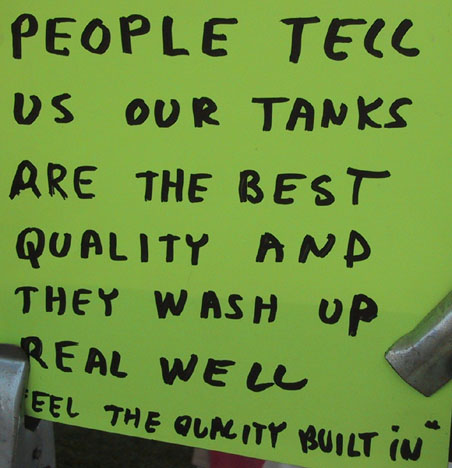 PEOPLE TELL
US OUR TANKS
ARE THE BEST
QUALITY AND
THEY WASH UP
REAL WELL
FEEL THE QUALITY BUILT iN"